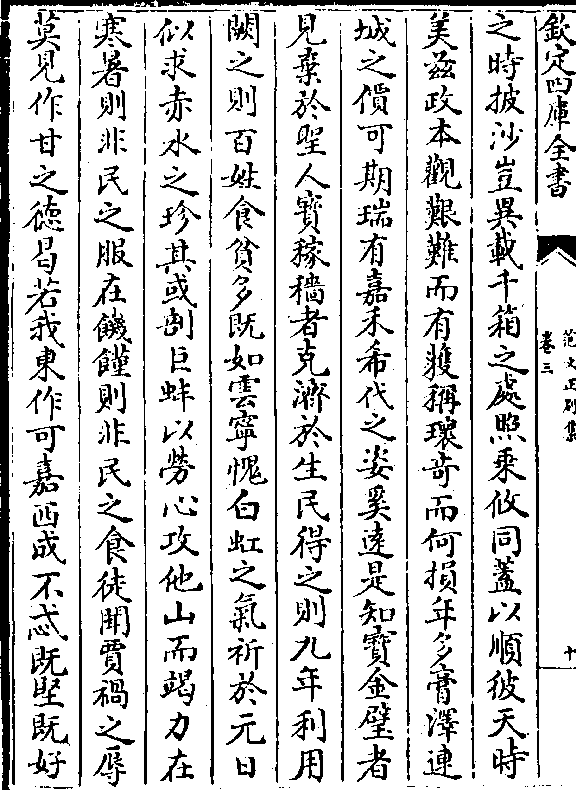 欽定四庫全書
范文正別集
卷三
十
之時披沙豈異載千箱之處照乘攸同蓋以順彼天時
美兹政本觀艱難而有獲稱瓌奇而何損年多膏澤連
城之價可期瑞有嘉禾希代之姿奚逺是知寳金璧者
見棄於聖人寳稼穡者克濟於生民得之則九年利用
闕之則百姓食貧多既如雲寧愧白虹之氣祈於元日
似求赤水之珍其或剖巨蚌以勞心攻他山而竭力在
寒暑則非民之服在饑饉則非民之食徒聞賈禍之辱
莫見作甘之徳曷若我東作可嘉西成不忒既堅既好